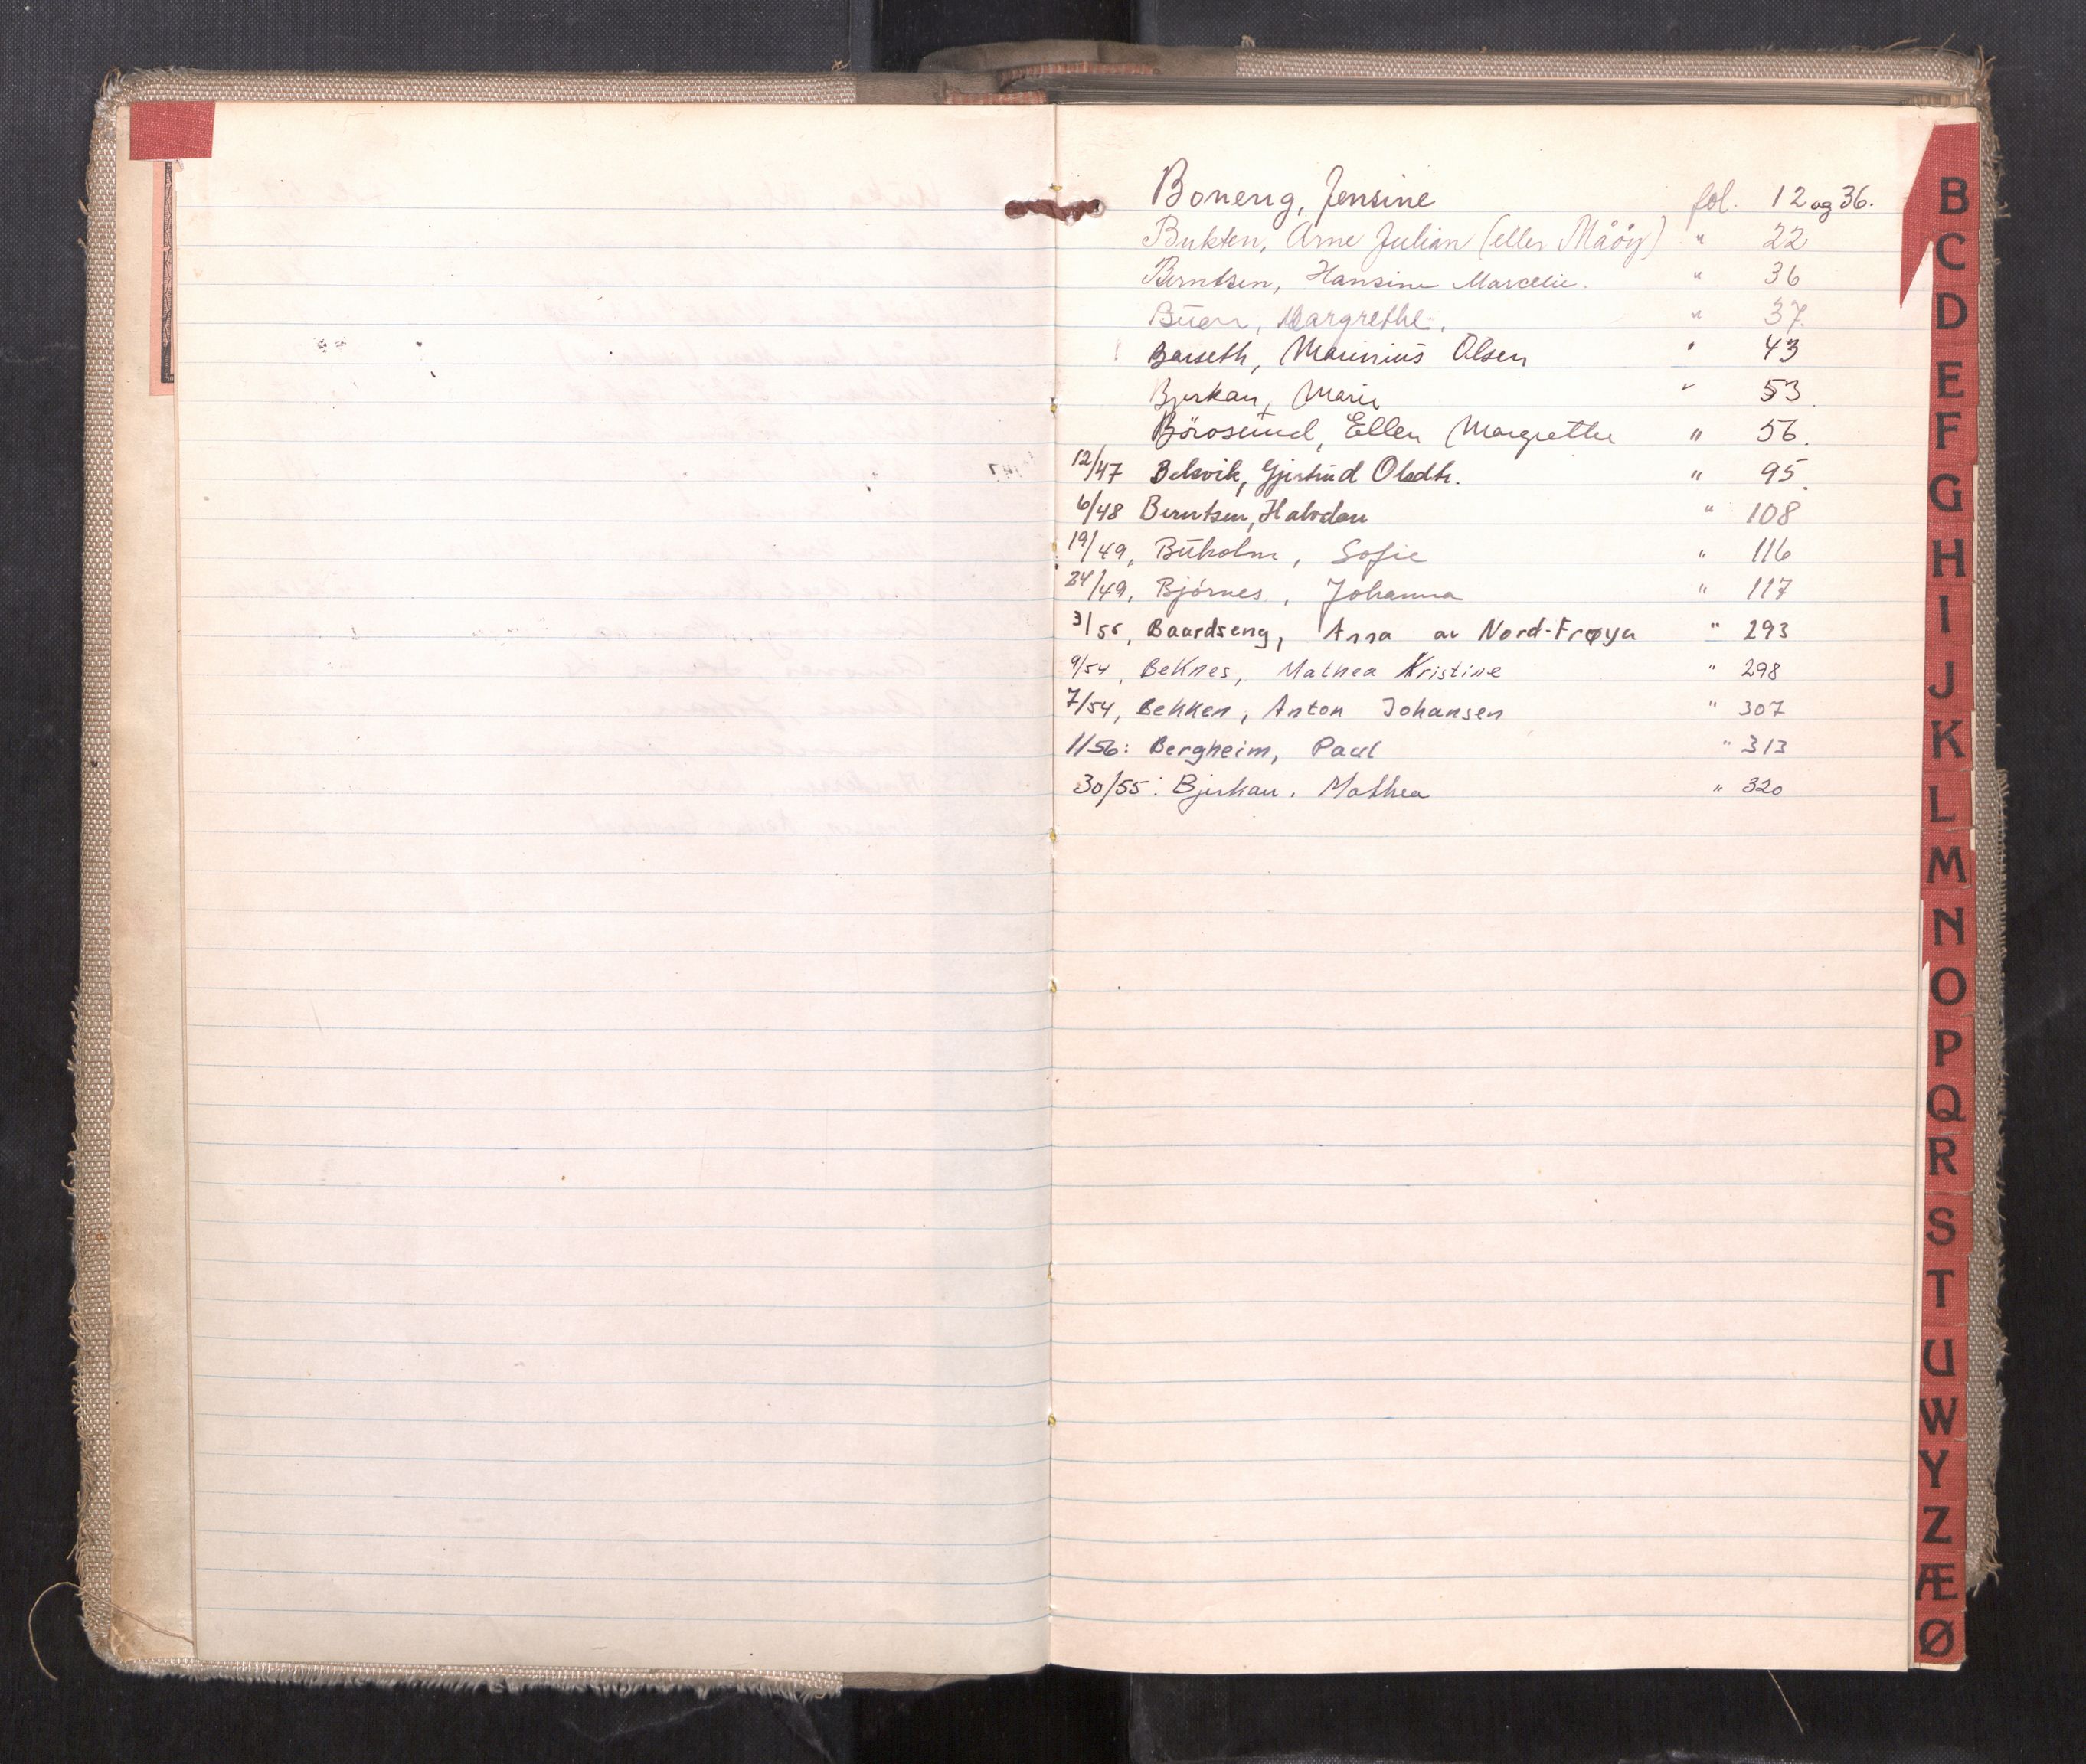 Boneng, Jensine fol. 12 og 36.
Bukten, Arne Julian (eller Måöy) " 22
Berntsen, Hansine Marcelie. " 36
Buen, Margrethe. " 37.
Barseth, Marinius Olsen " 43
Bjerkan, Marie " 53.
Börosund, Ellen Margrethe " 56.
12/47 Belsvik, Gjertrud Olsdtr. " 95.
6/48 Berntsen, Halvdan " 108
19/49, Buholm, Sofie " 116
24/49, Bjørnes, Johanna " 117
3/55, Baardseng, Anna av Nord-Frøya " 293
9/54, Beknes, Mathea Kristine " 298
7/54, Bekken, Anton Johansen " 307
1/56: Bergheim, Paul " 313
30/55: Bjerkan. Mathea " 320
B
C
D
E
F
G
H
I
J
K
L
M
N
O
P
Q
R
S
T
U
W
Y
Z
Æ
Ø